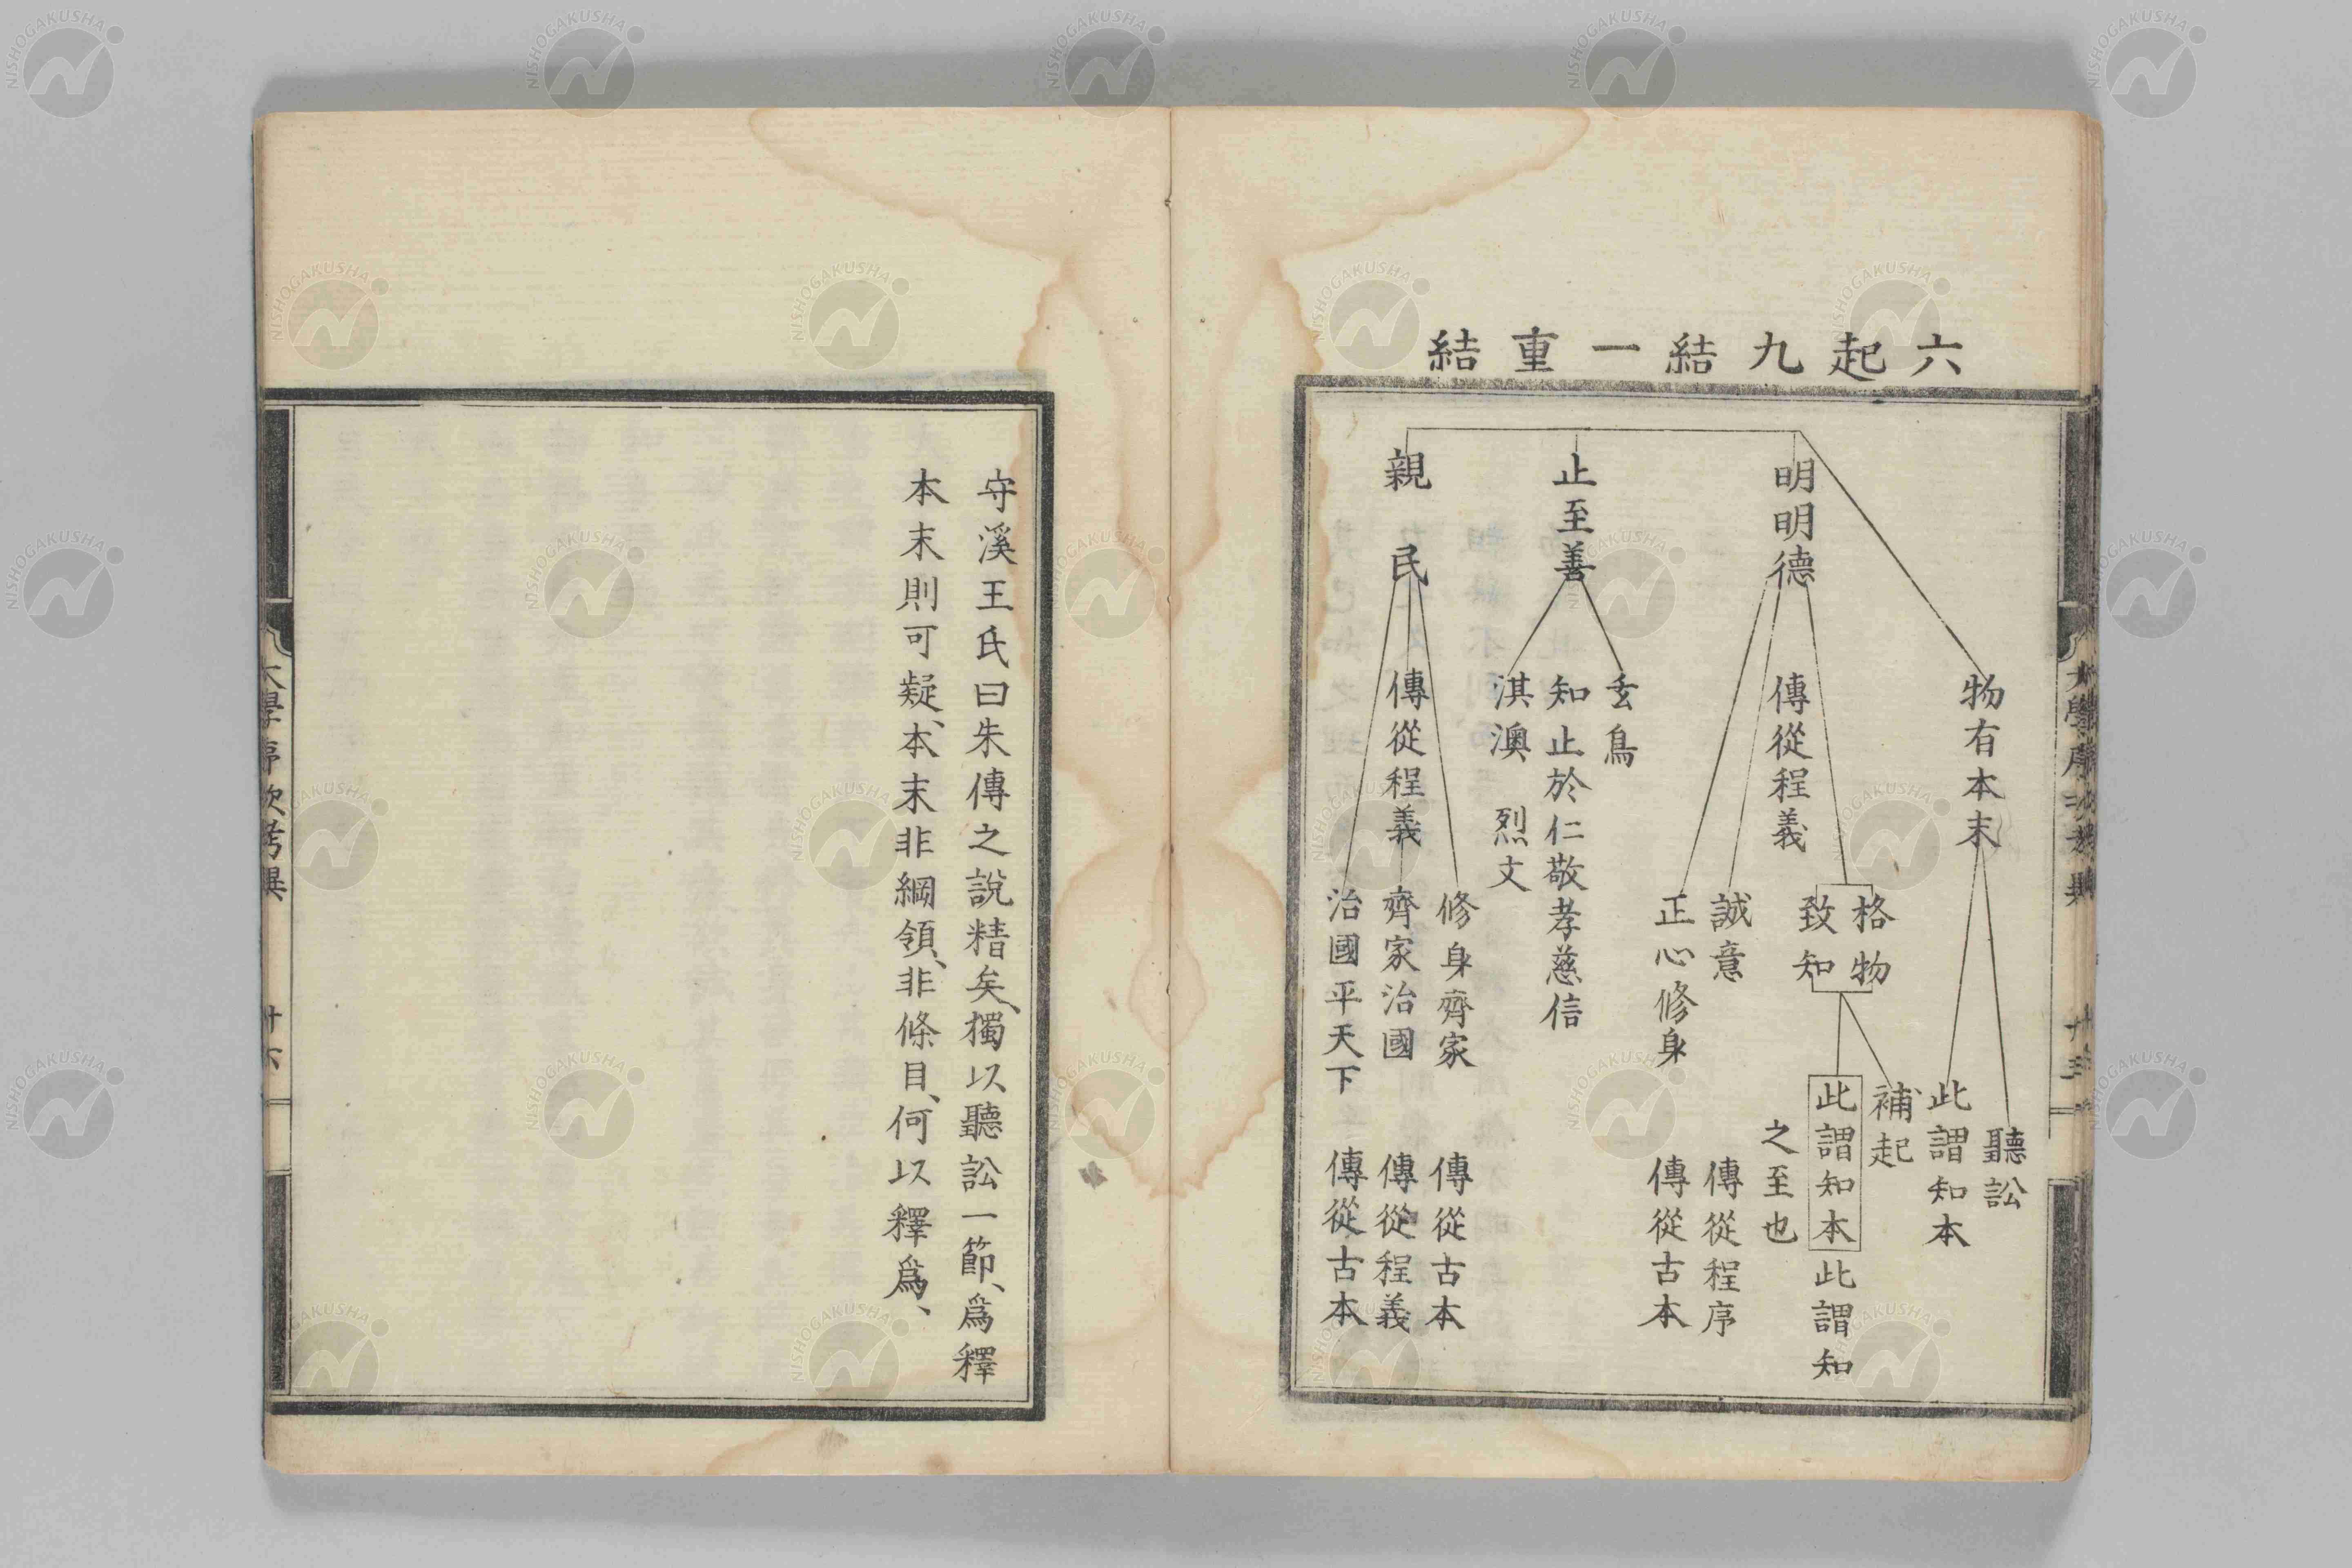 六起九結一重結
物有本末
聽訟
此謂知本
明明德
傳從程義
格物
致知
補起
此謂知本此謂知
之至也
誠意
傳從程序
正心修身
傳從古本
止至善
玄鳥
知止於仁敬孝慈信
淇澳
烈文
親民
傳從程義
修身齊家
傳從古本
齊家治國
傳從程義
治國平天下
傳從古本
守溪王氏曰朱傳之說精矣、獨以聽訟一節、爲釋
本末則可疑、本末非綱領、非條目、何以釋爲、
大學序次考異
十六
NISHOGAKUSHA